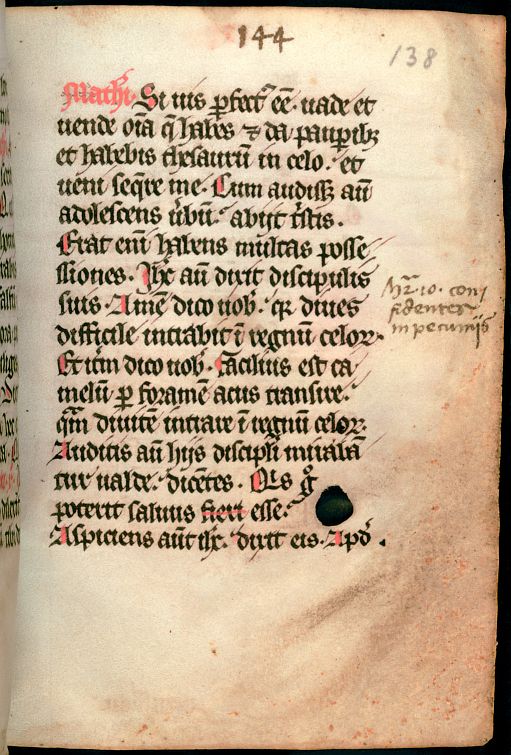 144
138
Mathi. Si uis pfect' ēē. uade et
uende oīa q̄ habes ⁊ da paupibꝫ
et habebis thesaurū in celo. et
ueni seqre me. Cum audissꝫ aūt
adolescens ūbū. abijt tstis.
Erat enī habens multas posse
ssiones. Ihc aūt dixit discipulis
suis. Amē dico uob'. qꝛ diues
difficile intrabit ī regnū celoꝝ.
Et itm dico uob'. Facilius est ca
melū p foramē acus transire.
qm̄ diuitē intrare ī regnū celoꝝ.
Auditis aūt hijs discipli mirabā
tur ualde. dicētes. Qis g°
poterit saluus fieri esse.
Aspiciens aūt ihc. dixit eis. Apd'.
Mr. 10. confi
fidentes
in pecunijs